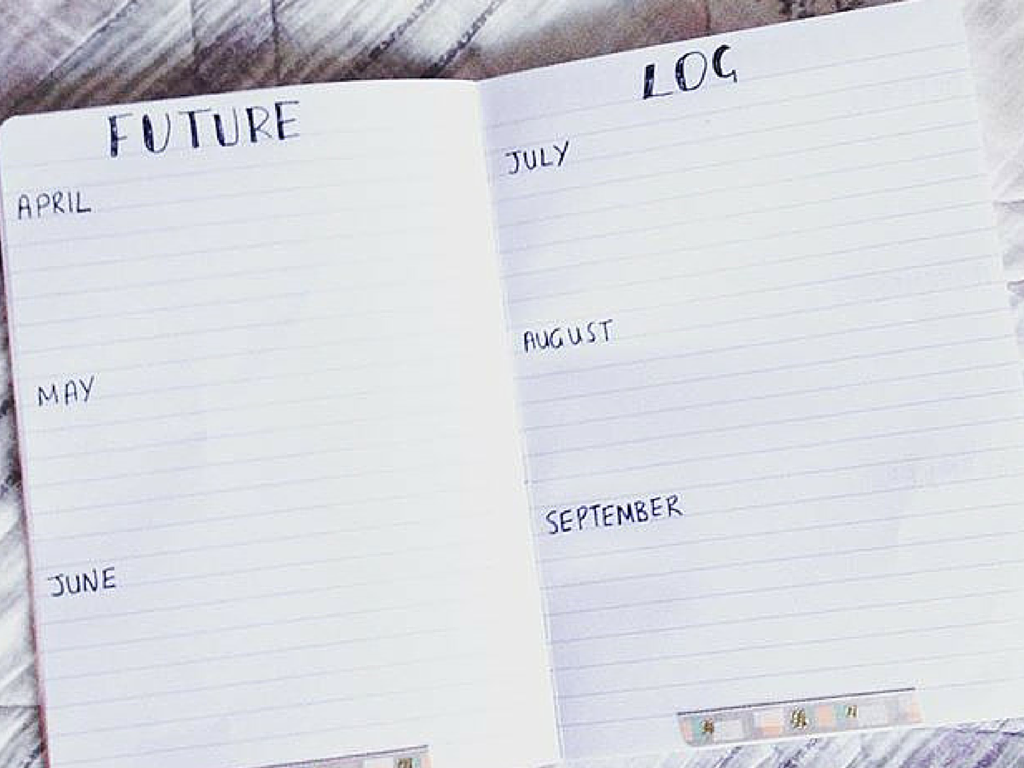 FUTURE
APRIL
MAY
JUNE
LOG
JULY
AUGUST
SEPTEMBER